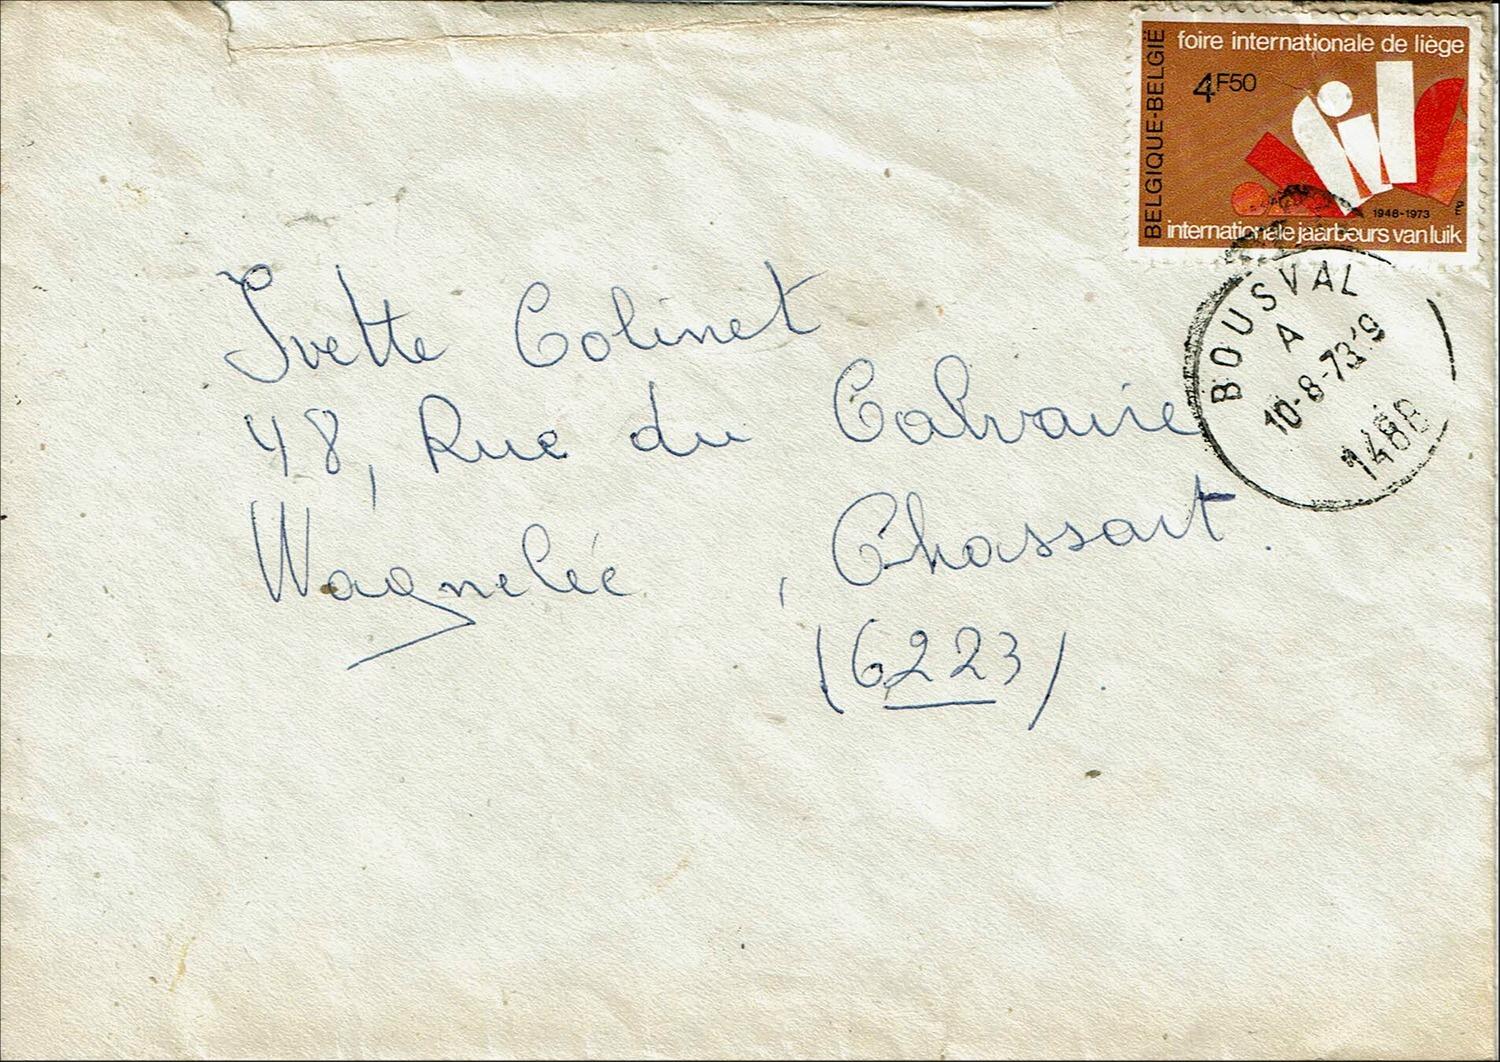 BELGIQUE-BELGIË
foire internationale de liège
4F50
1948-1973
internationale jaarbeurs van luik
BOUSVAL
A
10-8-73 19
Yvette Colinet
48, Rue du Calvaire
Wagnelée , Chassart.
(6223).